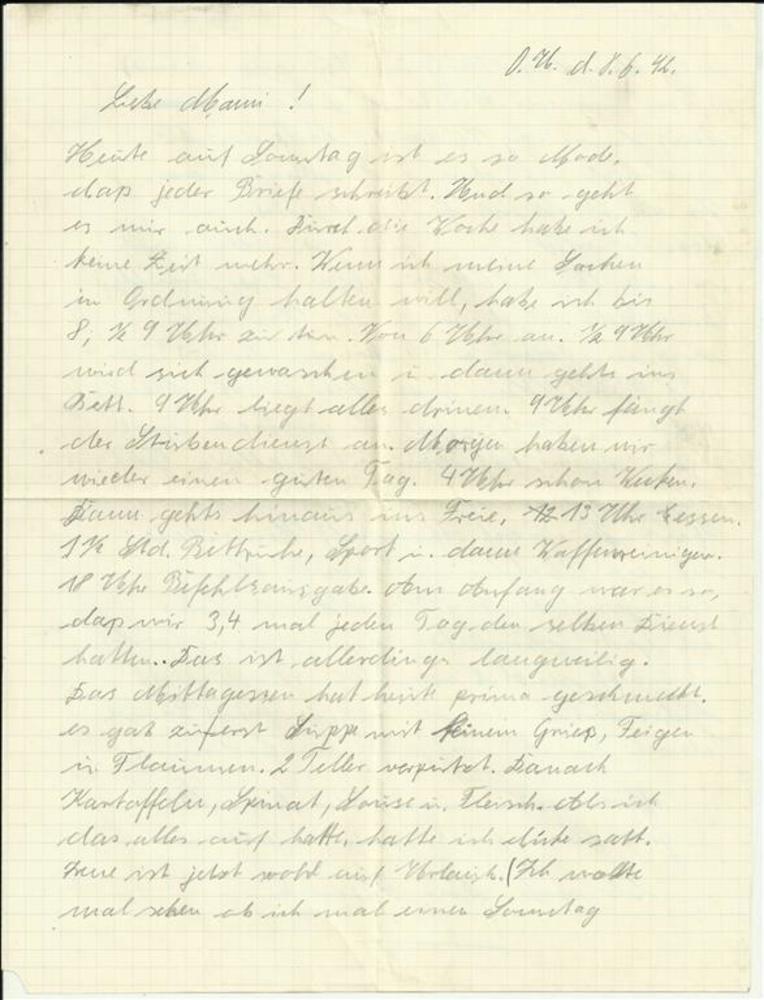 O.U. d. 8.6.42.
Liebe Mami!
Heute auf Sonntag ist es so Mode,
dass jeder Briefe schreibt. Und so geht
es mir auch. Durch die Woche habe ich
keine Zeit mehr. Wenn ich meine Sachen
in Ordnung halten will, habe ich bis
8, ½ 9 Uhr zu tun. Von 6 Uhr an. ½ 9 Uhr
wird sich gewaschen u. dann gehts ins
Bett. 9 Uhr liegt alles drinnen. 9 Uhr fängt
der Stubendienst an. Morgen haben wir
wieder einen guten Tag. 4 Uhr schon Wecken.
Dann gehts hinaus ins Freie, 13 Uhr Essen.
1½ Std. Bettruhe, Sport u. dann Waffenreinigen.
18 Uhr Befehlsausgabe. Am Anfang war es so,
dass wir 3,4 mal jeden Tag den selben Dienst
hatten. Das ist allerdings langweilig.
Das Mittagessen hat heute prima geschmeckt.
es gab zuerst Suppe mit feinem Gries, Feigen
u. Flaumen. 2 Teller verputzt. Danach
Kartoffeln, Spinat, Sause u. Fleisch. Als ich
das alles auf hatte, hatte ich dicke satt.
ist jetzt wohl auf Urlaub. (Ich wollte
mal sehen ob ich mal einen Sonntag